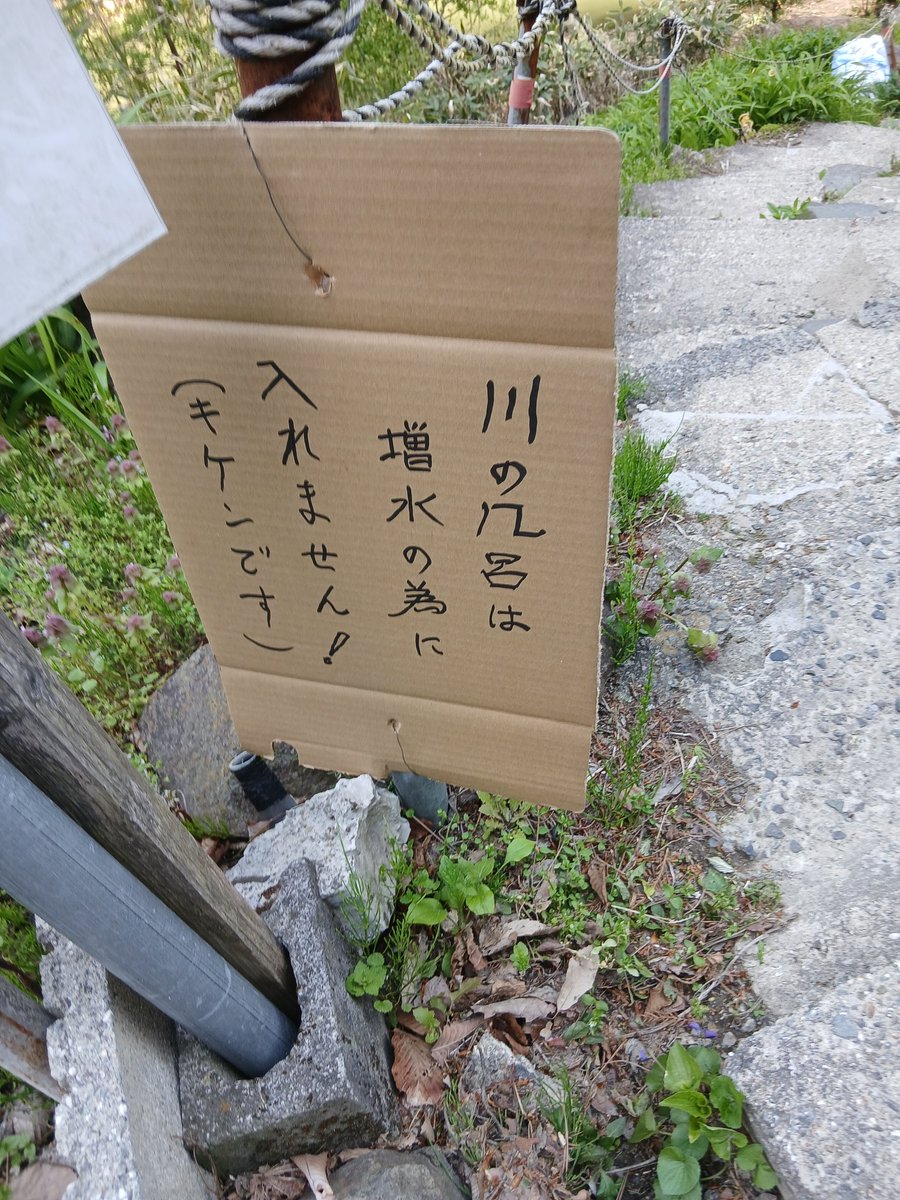 川の風呂は
増水の為に
入れません!
(キケンです)